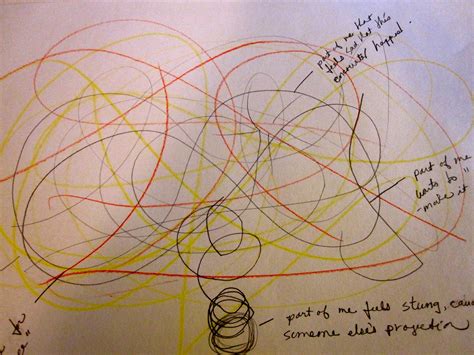 part of me that
feels sad that this
encounter happened.
part of me
wants to
"make it
part of me feels stung, cau
someone else's projection